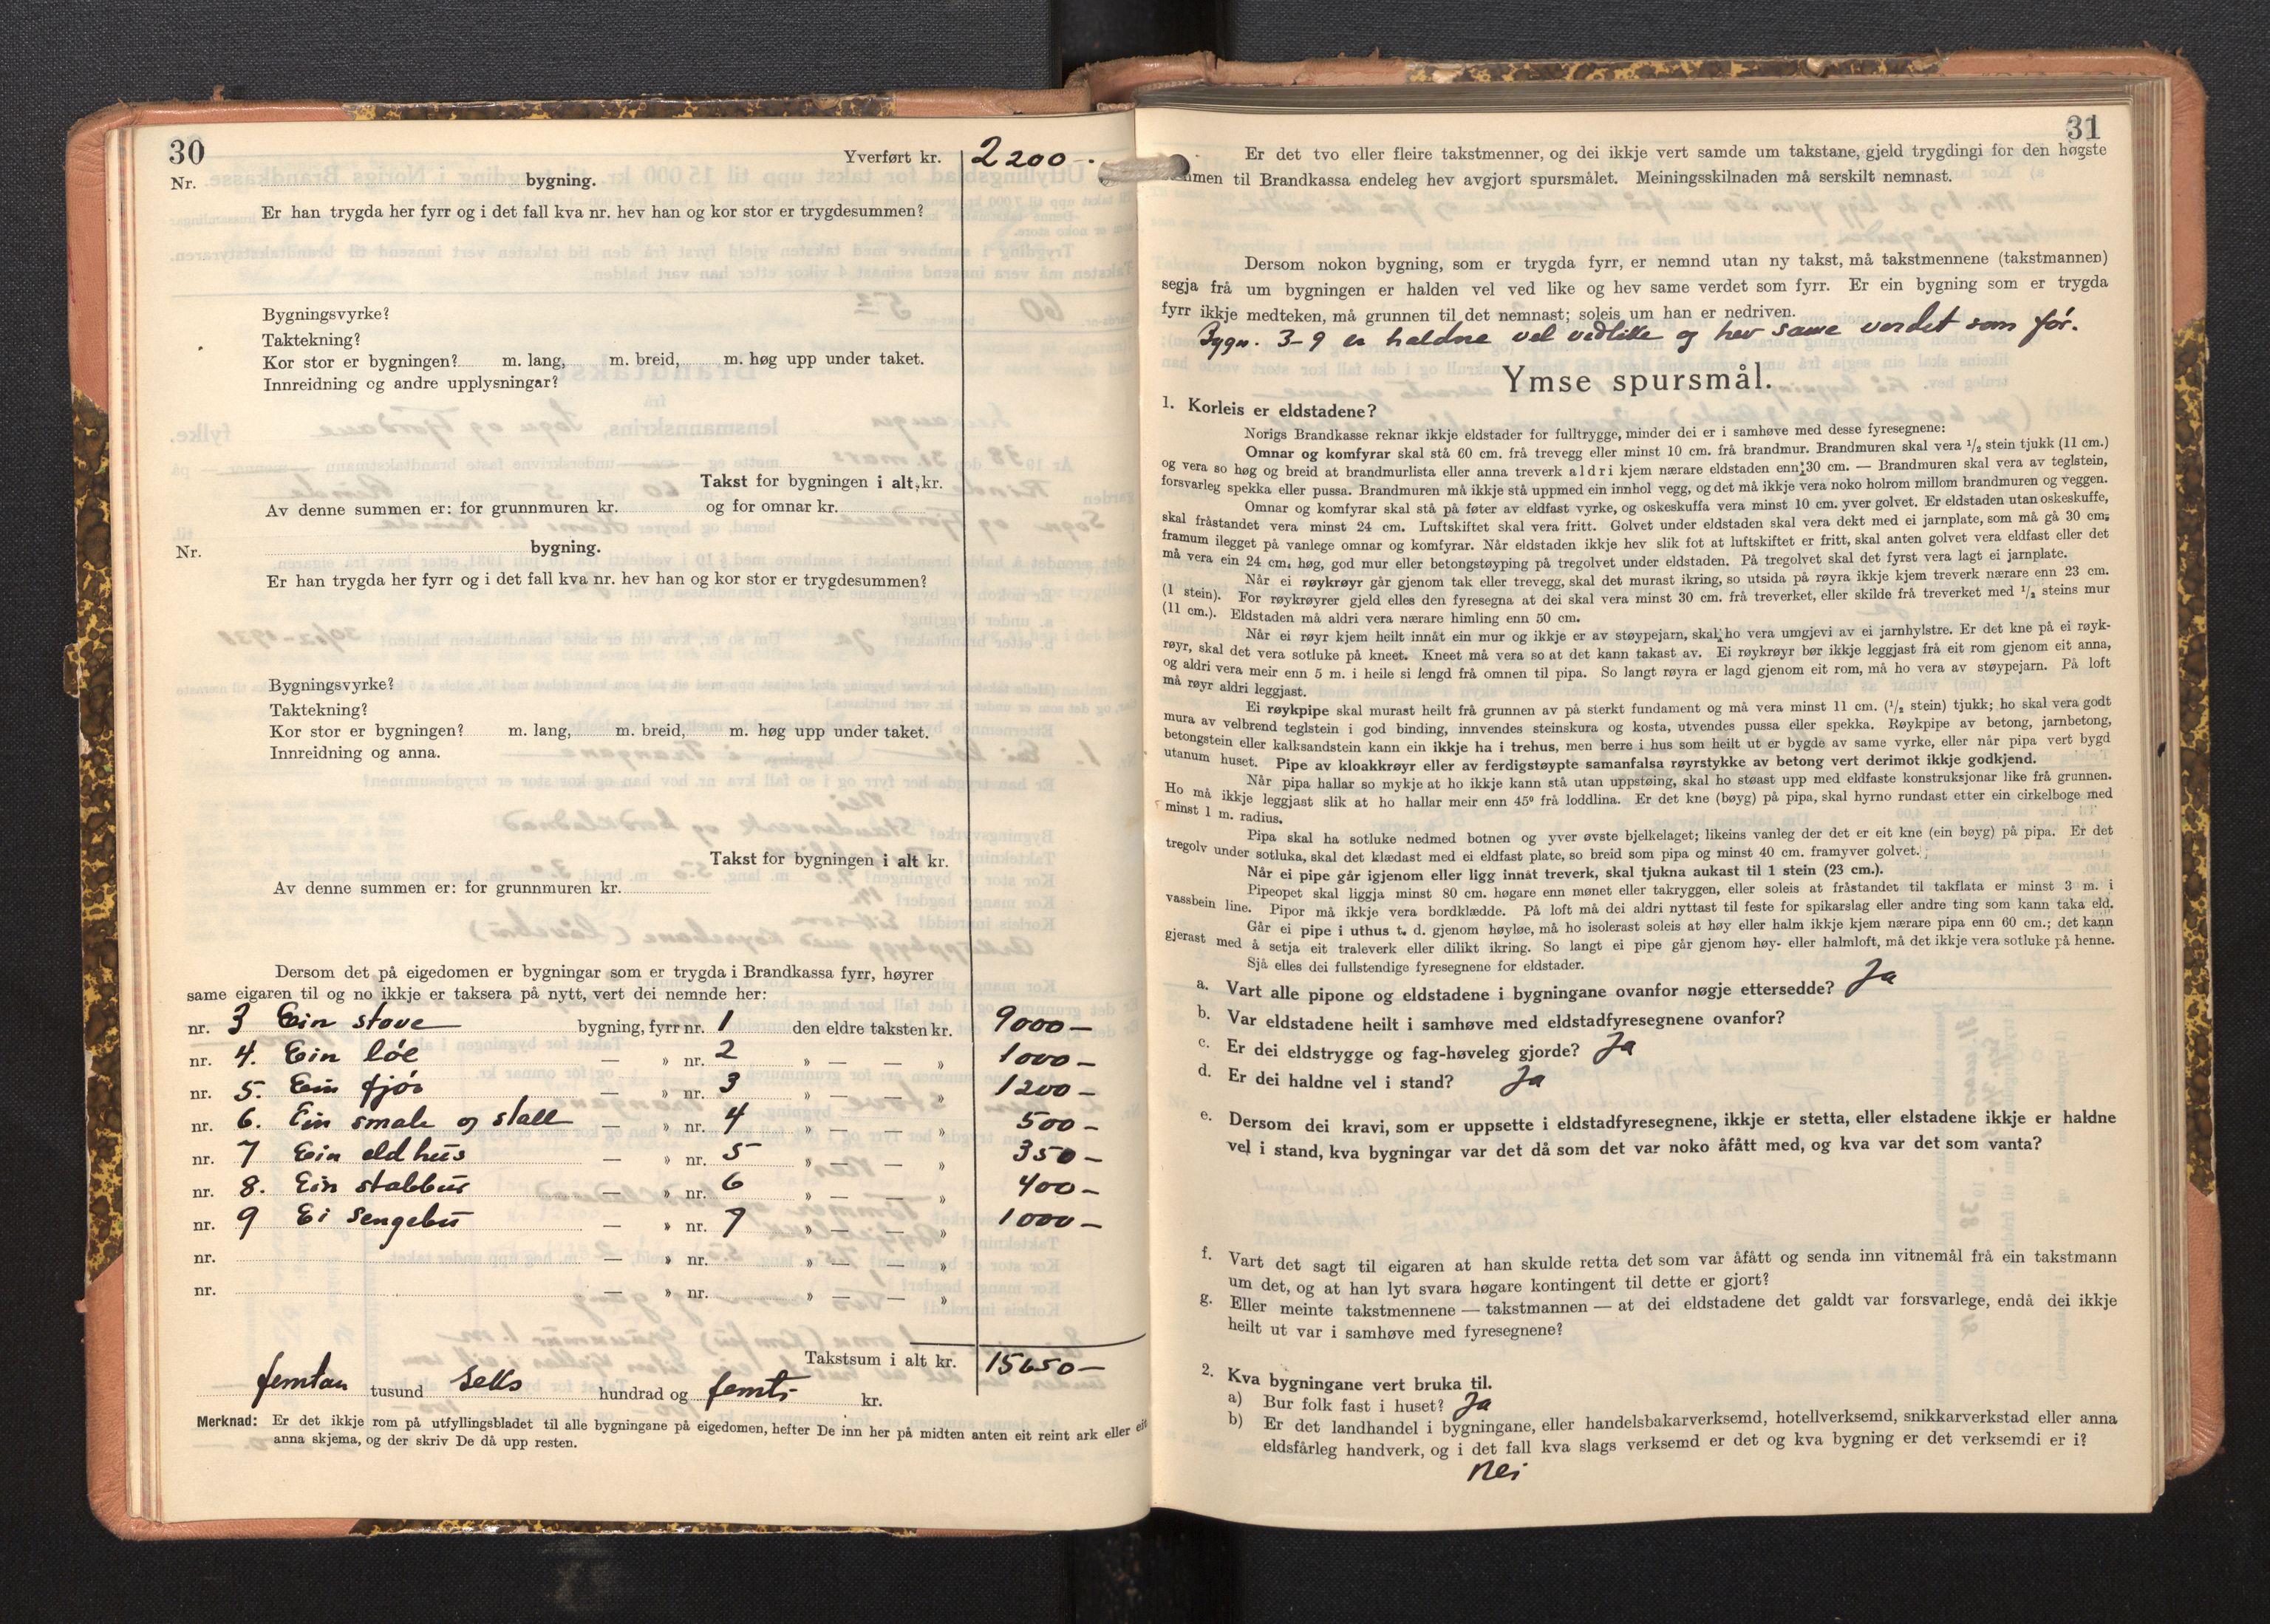 30
Yverført kr. 2200-.
Nr. bygning.
Er han trygda her fyrr og i det fall kva nr. hev han og kor stor er trygdesummen?
Bygningsvyrke?
Taktekning?
Kor stor er bygningen? m. lang, m. breid, m. høg upp under taket.
Innreidning og andre upplysningar?
Takst for bygningen i alt, kr.
Av denne summen er: for grunnmuren kr. og for omnar kr.
Nr. bygning.
Er han trygda her fyrr og i det fall kva nr. hev han og kor stor er trygdesummen?
Bygningsvyrke?
Taktekning?
Kor stor er bygningen? m. lang, m. breid, m. høg upp under taket.
Innreidning og anna.
Takst for bygningen i alt kr.
Av denne summen er: for grunnmuren kr.
Dersom det på eigedomen er bygningar som er trygda i Brandkassa fyrr, høyrer
same eigaren til og no ikkje er taksera på nytt, vert dei nemnde her:
nr. 3 Ein stove bygning, fyrr nr. 1 den eldre taksten kr. 9000-
nr. 4. Ein löe — » nr. 2 » — — » 1000-
nr. 5. Ein fjós — » nr. 3 » — — » 1200-
nr. 6. Ein smale og stall — » nr. 4 » — — » 500-
nr. 7 Ein eldhus — » nr. 5 » — — » 350-
nr. 8. Ein stabbur — » nr. 6 » — — » 400-
nr. 9 Ei sengebu — » nr. 7 » — — » 1000-
nr. — » nr. » — — »
nr. — » nr. » — — »
Takstsum i alt kr. 15650-
femtan tusund seks hundrad og femti kr.
Merknad: Er det ikkje rom på utfyllingsbladet til alle bygningane på eigedomen, hefter De inn her på midten anten eit reint ark eller eit
anna skjema, og der skriv De då upp resten.
31
Er det tvo eller fleire takstmenner, og dei ikkje vert samde um takstane, gjeld trygdingi for den høgste
mmen til Brandkassa endeleg hev avgjort spursmålet. Meiningsskilnaden må serskilt nemnast.
Dersom nokon bygning, som er trygda fyrr, er nemnd utan ny takst, må takstmennene (takstmannen)
segja frå um bygningen er halden vel ved like og hev same verdet som fyrr. Er ein bygning som er trygda
fyrr ikkje medteken, må grunnen til det nemnast; soleis um han er nedriven.
Bygn. 3-9 er haldne vel vedlike og hev same verdet som før.
Ymse spursmål.
1. Korleis er eldstadene?
Norigs Brandkasse reknar ikkje eldstader for fulltrygge, minder dei er i samhøve med desse fyresegnene:
Omnar og komfyrar skal stå 60 cm. frå trevegg eller minst 10 cm. frå brandmur. Brandmuren skal vera ½ stein tjukk (11 cm.)
og vera so høg og breid at brandmurlista eller anna treverk aldri kjem nærare eldstaden enn 30 cm. — Brandmuren skal vera av teglstein,
forsvarleg spekka eller pussa. Brandmuren må ikkje stå uppmed ein innhol vegg, og det må ikkje vera noko holrom millom brandmuren og veggen.
Omnar og komfyrar skal stå på føter av eldfast vyrke, og oskeskuffa vera minst 10 cm. yver golvet. Er eldstaden utan oskeskuffe,
skal fråstandet vera minst 24 cm. Luftskiftet skal vera fritt. Golvet under eldstaden skal vera dekt med ei jarnplate, som må gå 30 cm.
framum ilegget på vanlege omnar og komfyrar. Når eldstaden ikkje hev slik fot at luftskiftet er fritt, skal anten golvet vera eldfast eller det
må vera ein 24 cm. høg, god mur eller betongstøyping på tregolvet under eldstaden. På tregolvet skal det fyrst vera lagt ei jarnplate.
Når ei røykrøyr går gjenom tak eller trevegg, skal det murast ikring, so utsida på røyra ikkje kjem treverk nærare enn 23 cm.
(1 stein). For røykrøyrer gjeld elles den fyresegna at dei skal vera minst 30 cm. frå treverket, eller skilde frå treverket med ½ steins mur
(11 cm.). Eldstaden må aldri vera nærare himling enn 50 cm.
Når ei røyr kjem heilt innåt ein mur og ikkje er av støypejarn, skal ho vera umgjevi av ei jarnhylstre. Er det kne på ei røyk-
røyr, skal det vera sotluke på kneet. Kneet må vera so at det kann takast av. Ei røykrøyr bør ikkje leggjast frå eit rom gjenom eit anna,
og aldri vera meir enn 5 m. i heile si lengd frå omnen til pipa. So langt røyra er lagd gjenom eit rom, må ho vera av støypejarn. På loft
må røyr aldri leggjast.
Ei røykpipe skal murast heilt frå grunnen av på sterkt fundament og må vera minst 11 cm. (½ stein) tjukk; ho skal vera godt
mura av velbrend teglstein i god binding, innvendes steinskura og kosta, utvendes pussa eller spekka. Røykpipe av betong, jarnbetong,
betongstein eller kalksandstein kann ein ikkje ha i trehus, men berre i hus som heilt ut er bygde av same vyrke, eller når pipa vert bygd
utanum huset. Pipe av kloakkrøyr eller av ferdigstøypte samanfalsa røyrstykke av betong vert derimot ikkje godkjend.
Når pipa hallar so mykje at ho ikkje kann stå utan uppstøing, skal ho støast upp med eldfaste konstruksjonar like frå grunnen.
Ho må ikkje leggjast slik at ho hallar meir enn 45° frå loddlina. Er det kne (bøyg) på pipa, skal hyrno rundast etter ein cirkelboge med
minst 1 m. radius.
Pipa skal ha sotluke nedmed botnen og yver øvste bjelkelaget; likeins vanleg der det er eit kne (ein bøyg) på pipa. Er det
tregolv under sotluka, skal det klædast med ei eldfast plate, so breid som pipa og minst 40 cm. framyver golvet.
Når ei pipe går igjenom eller ligg innåt treverk, skal tjukna aukast til 1 stein (23 cm.).
Pipeopet skal liggja minst 80 cm. høgare enn mønet eller takryggen, eller soleis at fråstandet til takflata er minst 3 m. i
vassbein line. Pipor må ikkje vera bordklædde. På loft må dei aldri nyttast til feste for spikarslag eller andre ting som kann taka eld.
Går ei pipe i uthus t. d. gjenom høyløe, må ho isolerast soleis at høy eller halm ikkje kjem nærare pipa enn 60 cm.; det kann
gjerast med å setja eit traleverk eller dilikt ikring. So langt ei pipe går gjenom høy- eller halmloft, må det ikkje vera sotluke på henne.
Sjå elles dei fullstendige fyresegnene for eldstader.
a. Vart alle pipone og eldstadene i bygningane ovanfor nøgje ettersedde? Ja
b. Var eldstadene heilt i samhøve med eldstadfyresegnene ovanfor?
c. Er dei eldstrygge og fag-høveleg gjorde? Ja
d. Er dei haldne vel i stand? Ja
e. Dersom dei kravi, som er uppsette i eldstadfyresegnene, ikkje er stetta, eller elstadene ikkje er haldne
vel i stand, kva bygningar var det då som det var noko åfått med, og kva var det som vanta?
f. Vart det sagt til eigaren at han skulde retta det som var åfått og senda inn vitnemål frå ein takstmann
um det, og at han lyt svara høgare kontingent til dette er gjort?
g. Eller meinte takstmennene — takstmannen — at dei eldstadene det galdt var forsvarlege, endå dei ikkje
heilt ut var i samhøve med fyresegnene?
2. Kva bygningane vert bruka til.
a) Bur folk fast i huset? Ja
b) Er det landhandel i bygningane, eller handelsbakarverksemd, hotellverksemd, snikkarverkstad eller anna
eldsfårleg handverk, og i det fall kva slags verksemd er det og kva bygning er det verksemdi er i?
Nei